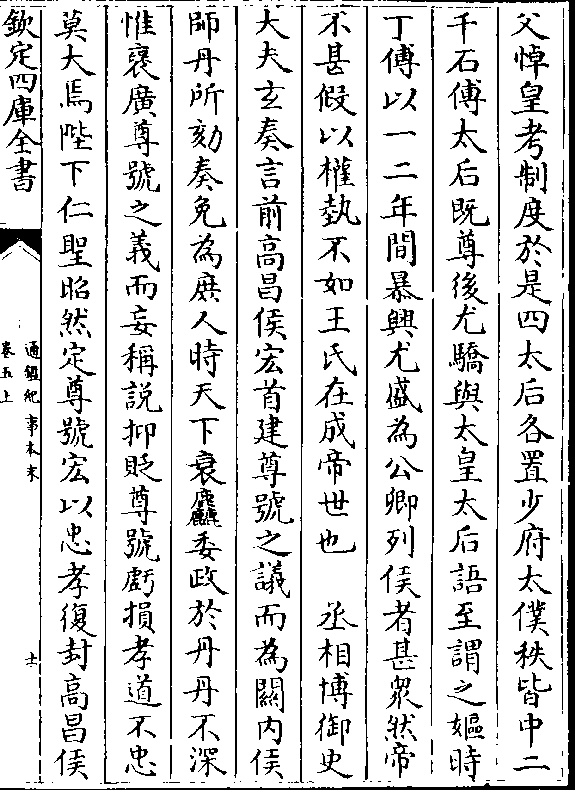 父悼皇考制度於是四太后各置少府太僕秩皆中二
千石傅太后既尊後尤驕與太皇太后語至謂之嫗時
丁傅以一二年間暴興尤盛為公卿列侯者甚衆然帝
不甚假以權埶不如王氏在成帝世也　丞相博御史
大夫玄奏言前高昌侯宏首建尊號之議而為關内侯
師丹所劾奏免為庶人時天下衰麤委政於丹丹不深
惟襃廣尊號之義而妄稱說抑貶尊號虧損孝道不忠
莫大焉陛下仁聖昭然定尊號宏以忠孝復封高昌侯
欽定四庫全書
通鑑紀事本末
卷五上
十一